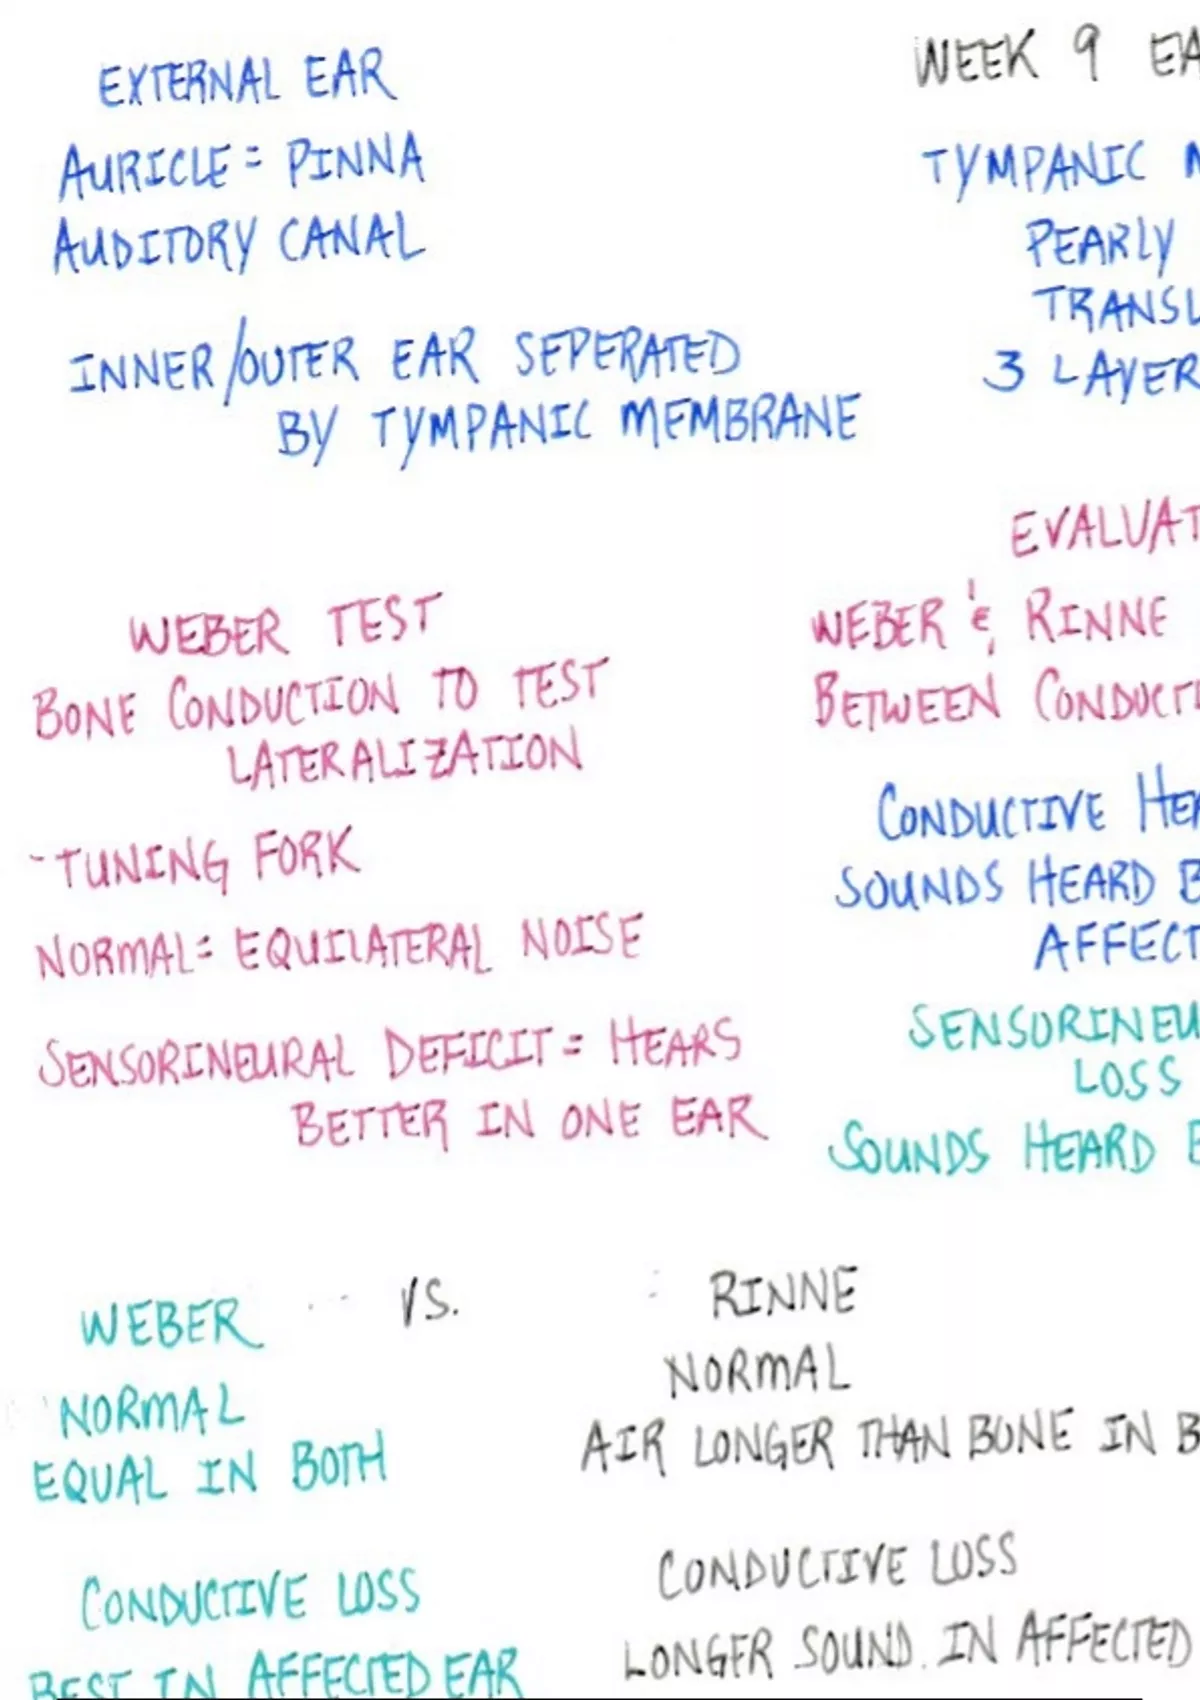 EXTERNAL EAR
AURICLE = PINNA
AUDITORY CANAL
INNER/OUTER EAR SEPERATED
BY TYMPANIC MEMBRANE
WEEK 9 EA
TYMPANIC M
PEARLY
TRANSL
3 LAYER
WEBER TEST
BONE CONDUCTION TO TEST
LATERALIZATION
-TUNING FORK
NORMAL = EQUILATERAL NOISE
SENSORINEURAL DEFICIT = HEARS
BETTER IN ONE EAR
EVALUAT
WEBER & RINNE
BETWEEN CONDUCTI
CONDUCTIVE HEA
SOUNDS HEARD B
AFFECT
SENSORINEU
LOSS
SOUNDS HEARD B
WEBER VS. RINNE
NORMAL
EQUAL IN BOTH
NORMAL
AIR LONGER THAN BONE IN B
CONDUCTIVE LOSS
BEST IN AFFECTED EAR
CONDUCTIVE LOSS
LONGER SOUND IN AFFECTED